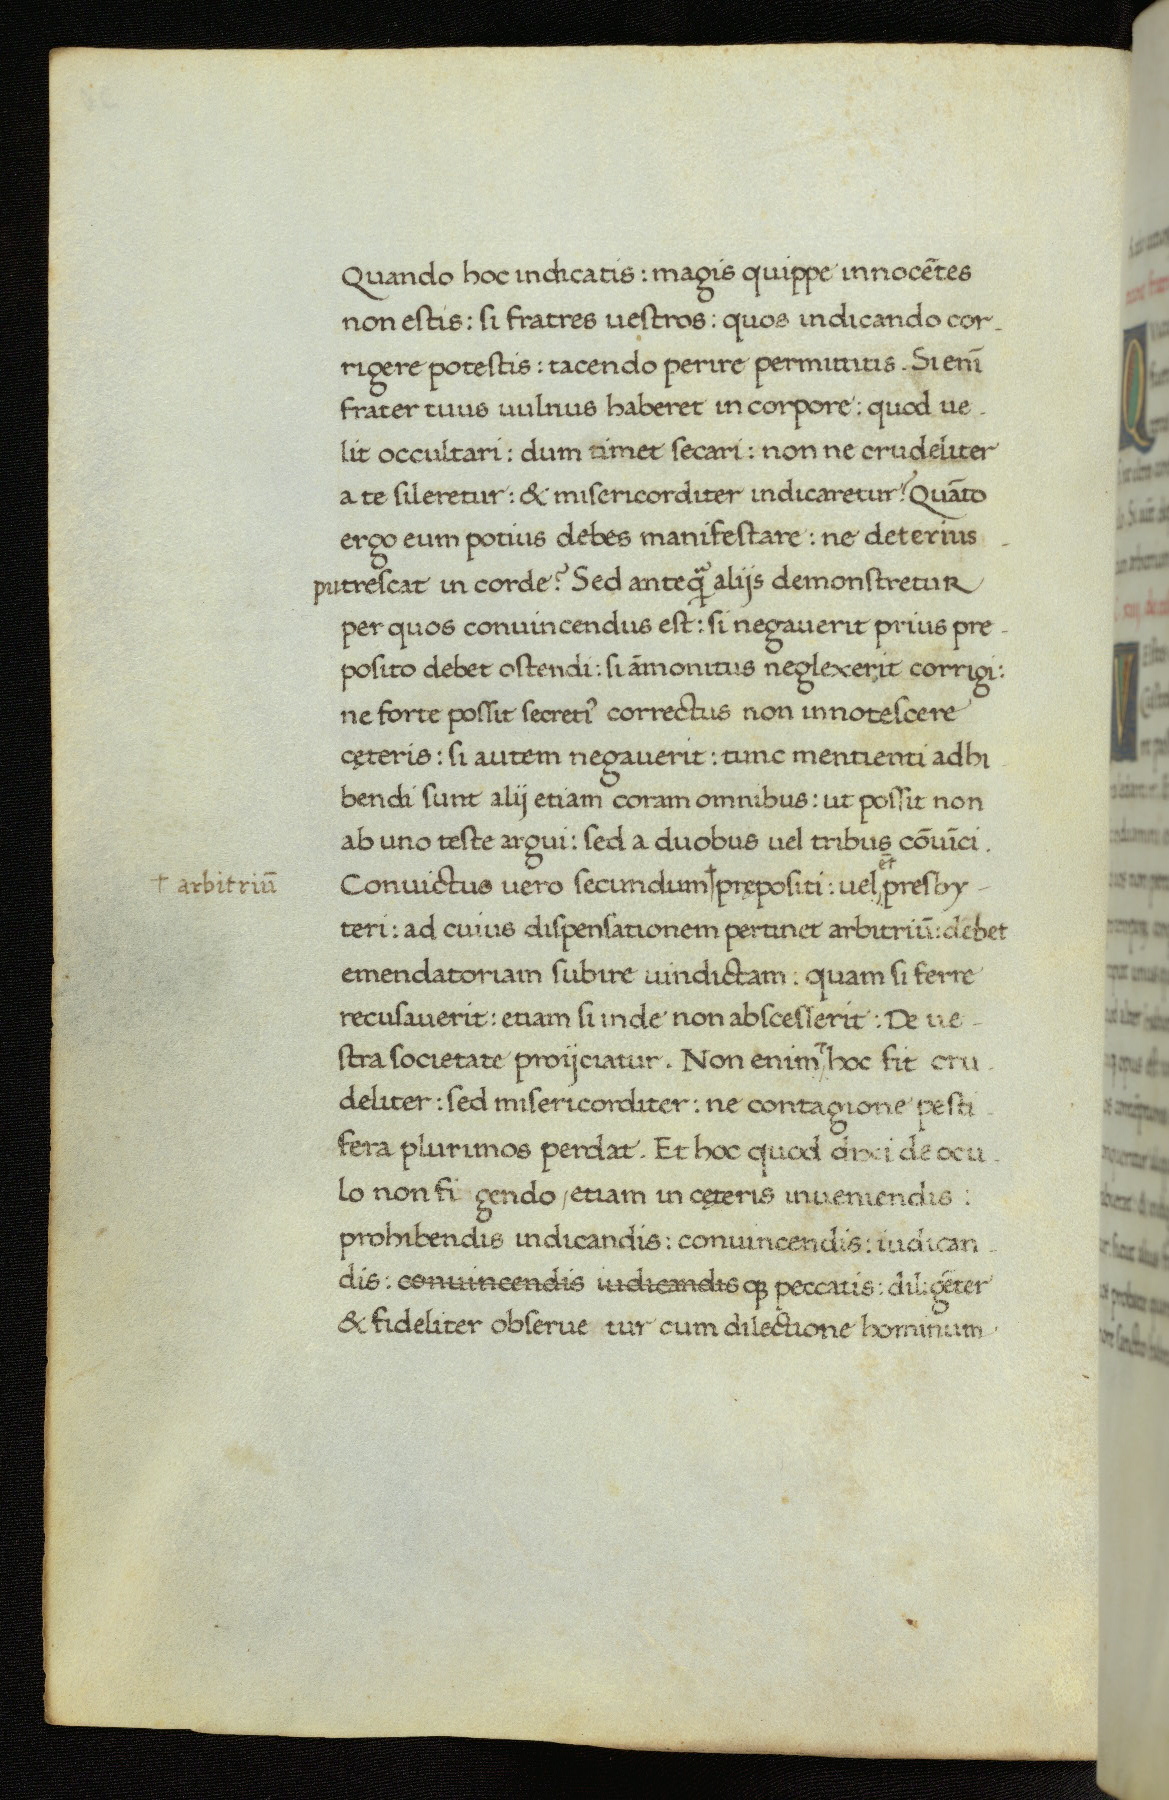 Quando hoc indicatis : magis quippe innocētes
non estis : si fratres uestros : quos indicando cor-
rigere potestis : tacendo perire permittitis . Si enī
frater tuus uulnus haberet in corpore : quod ue-
lit occultari : dum timet secari : non ne crudeliter
a te sileretur : & misericorditer indicaretur? Quāto
ergo eum potius debes manifestare : ne deterius
putrescat in corde? Sed anteꝗ̄ alijs demonstretur
per quos conuincendus est : si negauerit prius pre-
posito debet ostendi : si āmonitus neglexerit corrigi :
ne forte possit secretiꝰ correctus non innotescere
cęteris : si autem negauerit : tunc mentienti adhi
bendi sunt alij etiam coram omnibus : ut possit non
ab uno teste argui : sed a duobus uel tribus cōuīci .
† arbitriū
Conuictus uero secundum † prępositi : uel et presby-
teri : ad cuius dispensationem pertinet arbitriū : debet
emendatoriam subire uindictam : quam si ferre
recusauerit : etiam si inde non abscesserit : De ue-
stra societate proijciatur . Non enim hoc fit cru-
deliter : sed misericorditer : ne contagione pesti
fera plurimos perdat . Et hoc quod dixi de ocu-
lo non fi gendo , etiam in cęteris inueniendis :
prohibendis indicandis : conuincendis : iudican-
dis : conuincendis iudicandis qȝ peccatis : diligēter
& fideliter obserue tur cum dilectione hominum